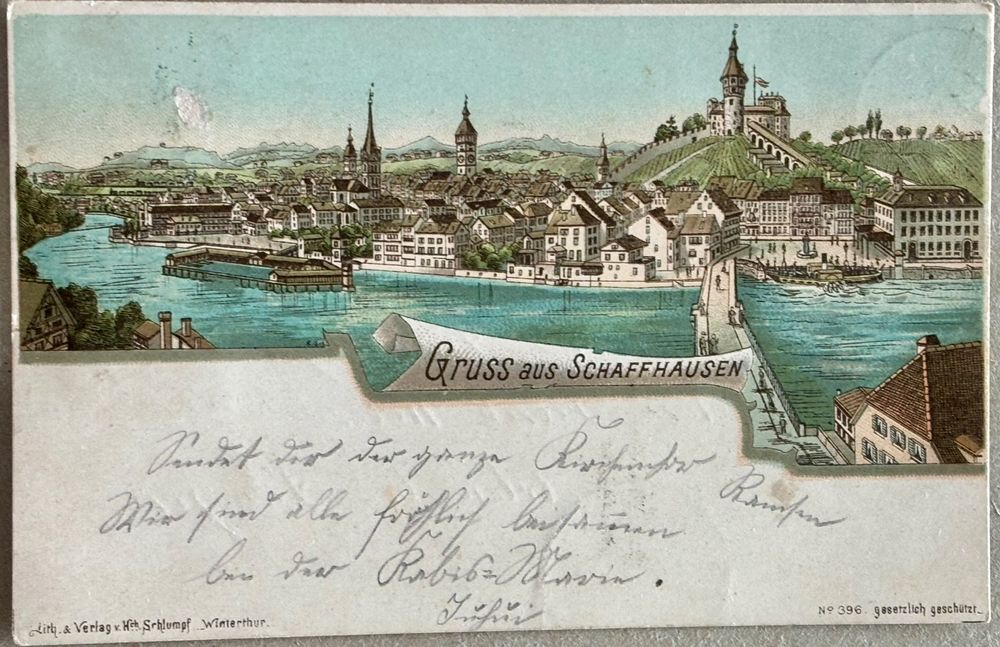 Gruss aus Schaffhausen
Sendet dir der ganze Kirchenchor
Ramsen
Wir sind alle fröhlich beisammen
bei der Kabis=Marie.
Juhui
Lith. & Verlag v. Hch. Schlumpf Winterthur.
No 396. gesetzlich geschützt.